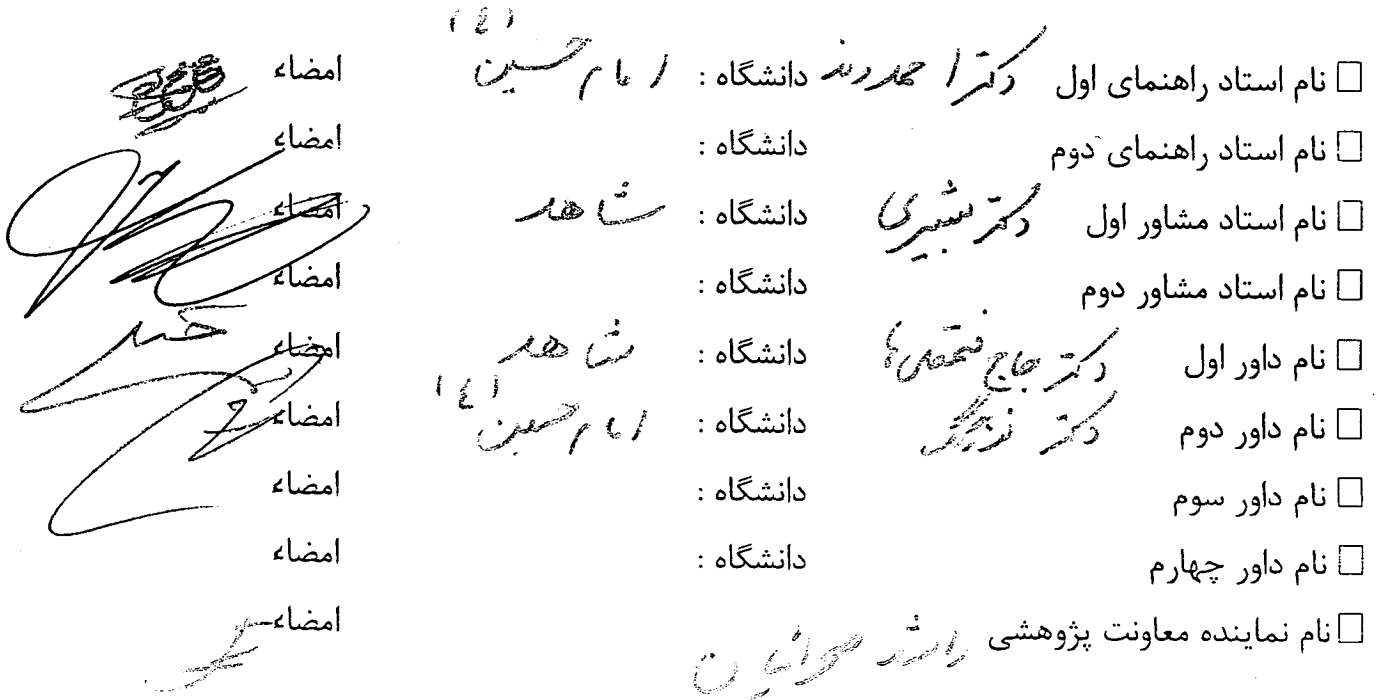 ☐ نام استاد راهنمای اول دکتر احمدوند دانشگاه : امام حسین (ع) امضاء
☐ نام استاد راهنمای دوم دانشگاه : امضاء
☐ نام استاد مشاور اول دکتر بشیری دانشگاه : شاهد امضاء
☐ نام استاد مشاور دوم دانشگاه : امضاء
☐ نام داور اول دکتر حاج فتحعلی‌ها دانشگاه : شاهد امضاء
☐ نام داور دوم دکتر دانشگاه : امام حسین (ع) امضاء
☐ نام داور سوم دانشگاه : امضاء
☐ نام داور چهارم دانشگاه : امضاء
☐ نام نماینده معاونت پژوهشی امضاء